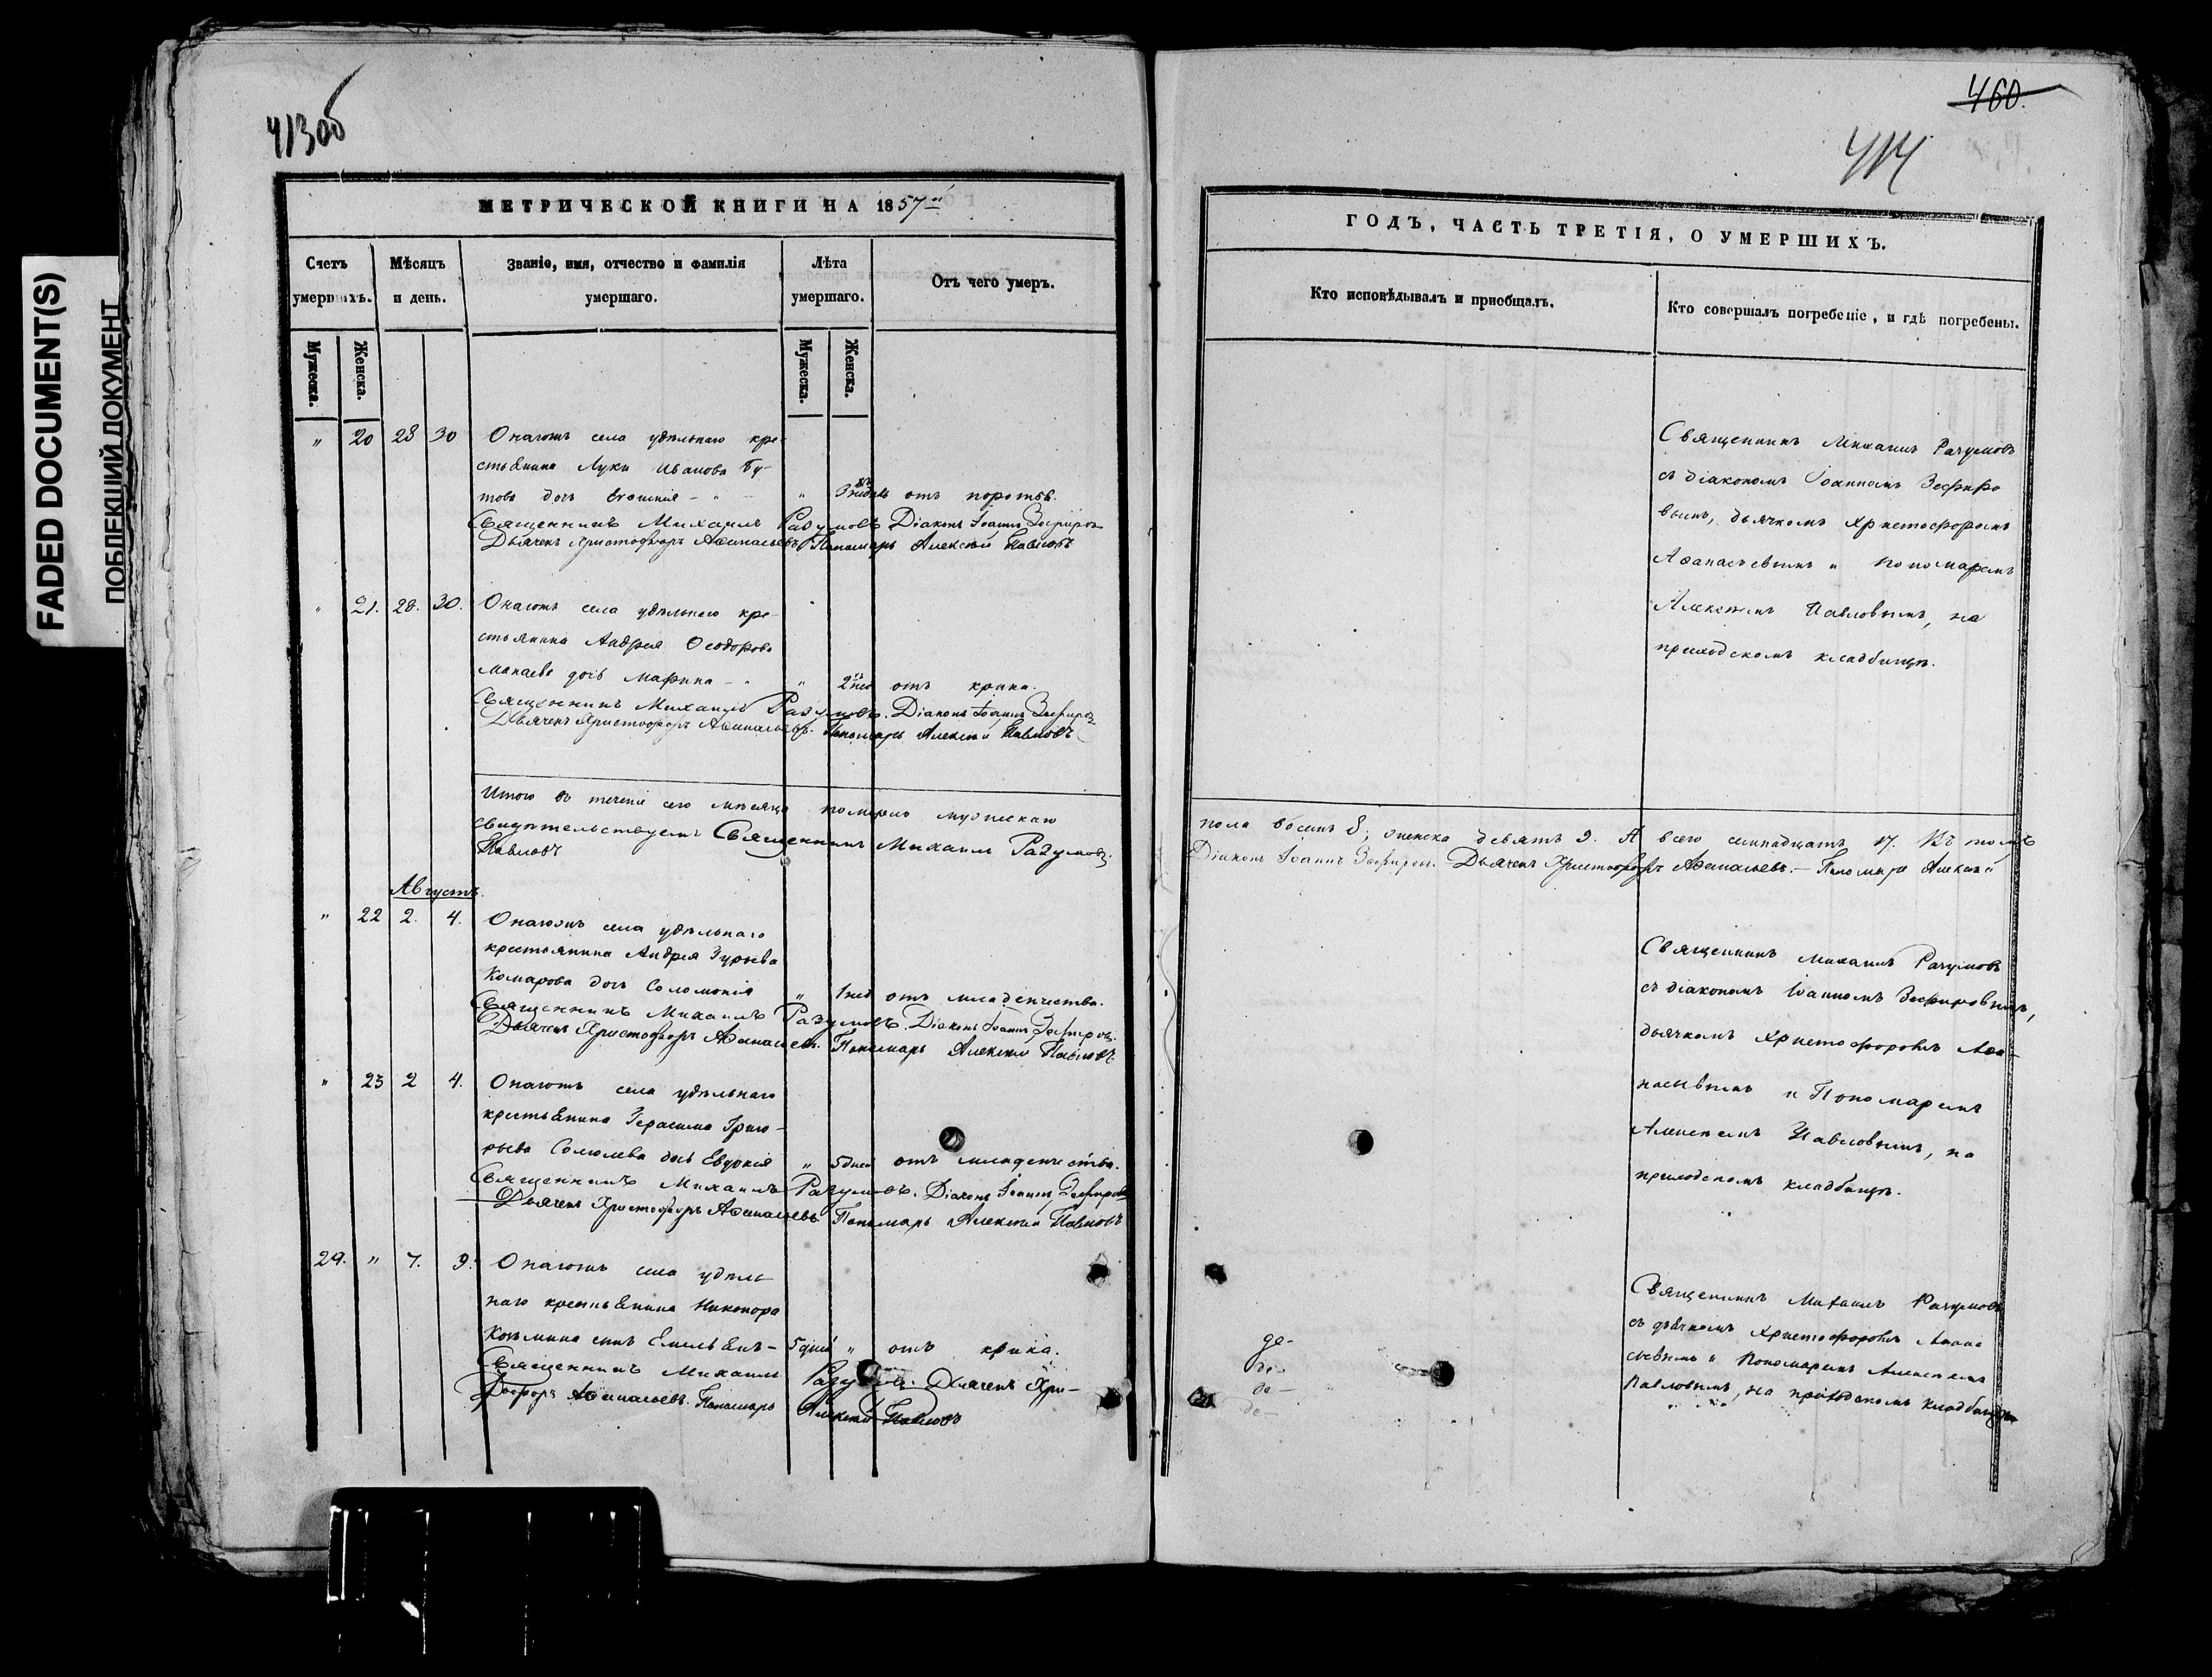 FADED DOCUMENT(S)
ПОБЛЕКШИЙ ДОКУМЕНТ
413об
МЕТРИЧЕСКОЙ КНИГИ НА 1857й
Счетъ умершихъ.
Мѣсяцъ и день.
Званіе, имя, отчество и фамилія умершаго.
Лѣта умершаго.
Отъ чего умеръ.
Мужеска.
Женска.
Мужеска.
Женска.
" 20 28 30 Онагожъ села удѣльнаго кре-
стьянина Луки Иванова Бу-
това дочь " 3 отъ
Священникъ Михаилъ Разумовъ Діаконъ Іоаннъ Зефировъ
Дьячекъ Христофоръ Аѳанасьевъ Пономарь Алексѣй Павловъ
" 21. 28. 30. Онагожъ села удѣльнаго кре-
стьянина Андрея Ѳеодорова
Манаева дочь Марина " 2 нед отъ крика.
Священникъ Михаилъ Разумовъ. Діаконъ Іоаннъ Зефировъ
Дьячекъ Христофоръ Аѳанасьевъ. Пономарь Алексѣй Павловъ
Итого въ теченіе сего мѣсяца померло мужескаго
свидѣтельствуемъ Священникъ Михаилъ Разумовъ.
Павловъ
Августъ.
" 22 2. 4. Онагожъ села удѣльнаго
крестьянина Андрея Гурьева
Комарова дочь Соломонія " 1 нед отъ младенчества.
Священникъ Михаилъ Разумовъ. Діаконъ Іоаннъ Зефировъ.
Дьячекъ Христофоръ Аѳанасьевъ. Пономарь Алексѣй Павловъ.
" 23 2 4. Онагожъ села удѣльнаго
крестьянина Герасима Григо-
рьева дочь Евдокія " 5 дней отъ младенчества.
Священникъ Михаилъ Разумовъ. Діаконъ Іоаннъ Зефировъ
Дьячекъ Христофоръ Аѳанасьевъ Пономарь Алексѣй Павловъ
29. " 7. 9. Онагожъ села удѣль-
наго крестьянина Никонора
Козьмина сынъ Емельянъ - 5 дней " отъ крика.
Священникъ Михаилъ Разумовъ. Дьячекъ Хри-
стофоръ Аѳанасьевъ. Пономарь Алексѣй Павловъ
460.
414
ГОДЪ, ЧАСТЬ ТРЕТІЯ, О УМЕРШИХЪ.
Кто исповѣдывалъ и пріобщалъ.
Кто совершалъ погребеніе, и гдѣ погребены.
Священникъ Михаилъ Разумовъ
съ діакономъ Іоанномъ Зефиро
вымъ, дьячкомъ Христофоромъ
Аѳанасьевымъ и пономаремъ
Алексѣемъ Павловымъ, на
приходскомъ кладбищѣ.
пола восемь 8; женска девять 9. А всего семнадцать 17. Въ томъ
Діаконъ Іоаннъ Зефировъ. Дьячекъ Христофоръ Аѳанасьевъ. — Пономарь Алексѣй
Священникъ Михаилъ Разумовъ
съ діакономъ Іоанномъ Зефировымъ,
дьячкомъ Христофоромъ Аѳа-
насьевымъ и Пономаремъ
Алексѣемъ Павловымъ, на
приходскомъ кладбищѣ.
Священникъ Михаилъ Разумовъ
съ дьячкомъ Христофоромъ Аѳана
сьевымъ и Пономаремъ Алексѣемъ
Павловымъ, на приходскомъ кладбищѣ